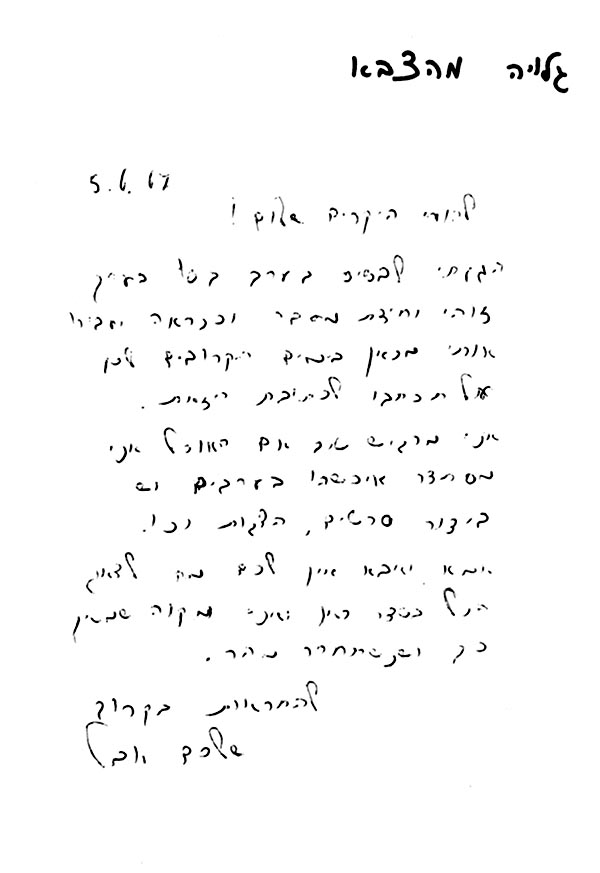 גלויה מהצבא
5.6.67
להורי היקרים שלום!
הגעתי לבסיס בערב בסי
זוהי יחידת מעבר וכנראה יעבירו
אותי מכאן בימים הקרובים לכן
על תכתבו לכתובת הזאת.
אני מרגיש טוב אם האוכל אני
מסתדר איכשהו בערבים יש
בידור סרטים, הצגות וכו'.
אמא ואבא אין לכם מה לדאוג
הכל בסדר ואני מקוה שנמשיך
כך ושנשתחרר מהר.
להתראות בקרוב
שלכם